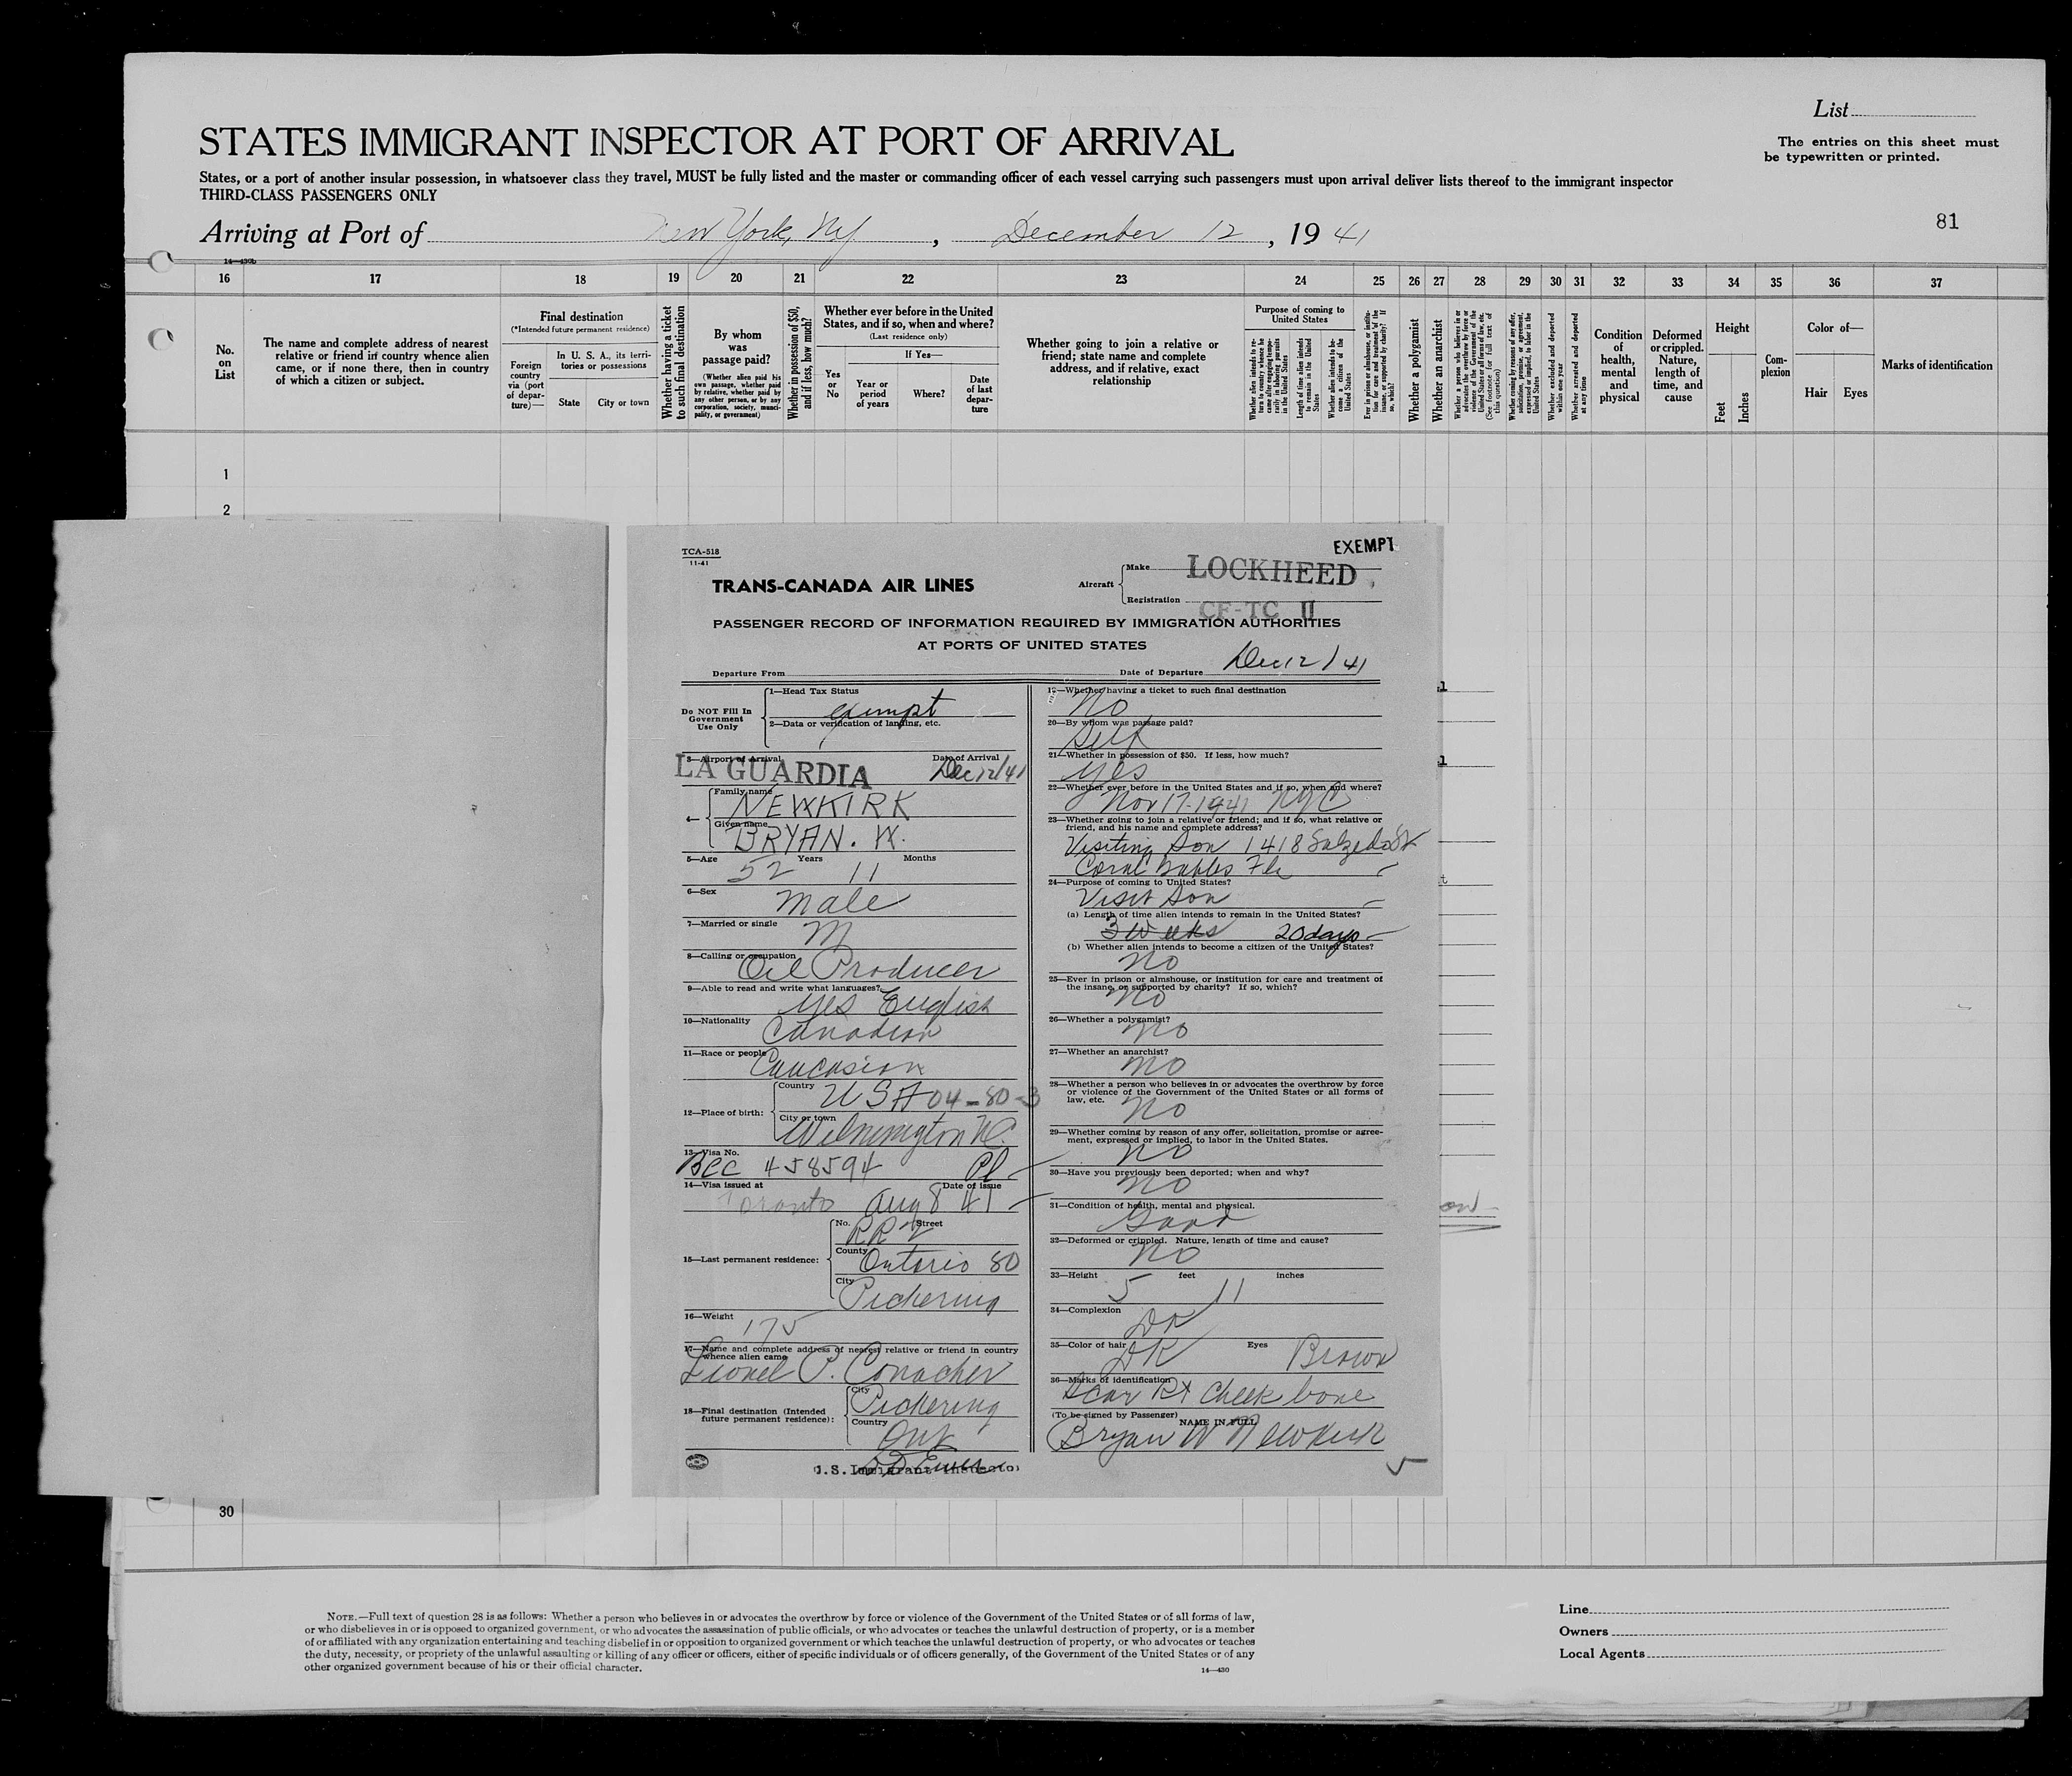 List
STATES IMMIGRANT INSPECTOR AT PORT OF ARRIVAL
The entries on this sheet must
be typewritten or printed.
States, or a port of another insular possession, in whatsoever class they travel, MUST be fully listed and the master or commanding officer of each vessel carrying such passengers must upon arrival deliver lists thereof to the immigrant inspector
THIRD-CLASS PASSENGERS ONLY
Arriving at Port of New York, NY, December 12, 1941
81
14—430b
16 17 18 19 20 21 22 23 24 25 26 27 28 29 30 31 32 33 34 35 36 37
No.
on
List
The name and complete address of nearest
relative or friend in country whence alien
came, or if none there, then in country
of which a citizen or subject.
Final destination
(*Intended future permanent residence)
Foreign
country
via (port
of depar-
ture)—
In U. S. A., its terri-
tories or possessions
State
City or town
Whether having a ticket
to such final destination
By whom
was
passage paid?
(Whether alien paid his
own passage, whether paid
by relative, whether paid by
any other person, or by any
corporation, society, munici-
pality, or government)
Whether in possession of $50,
and if less, how much?
Whether ever before in the United
States, and if so, when and where?
(Last residence only)
Yes
or
No
If Yes—
Year or
period
of years
Where?
Date
of last
depar-
ture
Whether going to join a relative or
friend; state name and complete
address, and if relative, exact
relationship
Purpose of coming to
United States
Whether alien intends to re-
turn to country whence he
came after engaging tempo-
rarily in laboring pursuits
in the United States
Length of time alien intends
to remain in the United
States
Whether alien intends to be-
come a citizen of the
United States
Ever in prison or almshouse, or institu-
tion for care and treatment of the
insane, or supported by charity? If
so, which?
Whether a polygamist
Whether an anarchist
Whether a person who believes in or
advocates the overthrow by force or
violence of the Government of the
United States or all forms of law, etc.
(See footnote for full text of
this question)
Whether coming by reasons of any offer,
solicitation, promise, or agreement,
expressed or implied, to labor in the
United States
Whether excluded and deported
within one year
Whether arrested and deported
at any time
Condition
of
health,
mental
and
physical
Deformed
or crippled.
Nature,
length of
time, and
cause
Height
Feet
Inches
Com-
plexion
Color of—
Hair
Eyes
Marks of identification
1
2
TCA-518
11-41
EXEMPT
TRANS-CANADA AIR LINES
Aircraft
Make LOCKHEED
Registration CF-TC
PASSENGER RECORD OF INFORMATION REQUIRED BY IMMIGRATION AUTHORITIES
AT PORTS OF UNITED STATES
Departure From
Date of Departure Dec 12/41
Do NOT Fill In
Government
Use Only
1—Head Tax Status
exempt
2—Data or verification of landing, etc.
3—Airport of Arrival
Date of Arrival
LA GUARDIA Dec 12/41
4—
Family name
NEWKIRK
Given name
BRYAN. W.
5—Age 52 Years 11 Months
6—Sex
Male
7—Married or single
M
8—Calling or occupation
Oil Producer
9—Able to read and write what languages?
yes English
10—Nationality
Canadian
11—Race or people
Caucasion
12—Place of birth:
Country
USA 04-80-3
City or town
Wilmington NC.
13—Visa No.
BCC 458594
14—Visa issued at Date of issue
Toronto Aug 8 41
15—Last permanent residence:
No. Street
RR 2
County
Ontario 80
City
Pickering
16—Weight
175
17—Name and complete address of nearest relative or friend in country
whence alien came
Lionel P. Conacher
18—Final destination (Intended
future permanent residence):
City
Pickering
Country
Ont
U.S. Immigrant Inspector
19—Whether having a ticket to such final destination
No
20—By whom was passage paid?
Self
21—Whether in possession of $50. If less, how much?
yes
22—Whether ever before in the United States and if so, when and where?
Nov 17-1941 NYC
23—Whether going to join a relative or friend; and if so, what relative or
friend, and his name and complete address?
Visiting Son 1418 Salzedo St
Coral Gables Fla
24—Purpose of coming to United States?
Visit Son
(a) Length of time alien intends to remain in the United States?
3 Weeks 20 days
(b) Whether alien intends to become a citizen of the United States?
No
25—Ever in prison or almshouse, or institution for care and treatment of
the insane, or supported by charity? If so, which?
No
26—Whether a polygamist?
No
27—Whether an anarchist?
No
28—Whether a person who believes in or advocates the overthrow by force
or violence of the Government of the United States or all forms of
law, etc.
No
29—Whether coming by reason of any offer, solicitation, promise or agree-
ment, expressed or implied, to labor in the United States.
No
30—Have you previously been deported; when and why?
No
31—Condition of health, mental and physical.
Good
32—Deformed or crippled. Nature, length of time and cause?
No
33—Height 5 feet 11 inches
34—Complexion
Dk
35—Color of hair DK Eyes Brown
36—Marks of identification
Scar Rt Cheek bone
(To be signed by Passenger) NAME IN FULL
Bryan W Newkirk
30
NOTE.—Full text of question 28 is as follows: Whether a person who believes in or advocates the overthrow by force or violence of the Government of the United States or of all forms of law,
or who disbelieves in or is opposed to organized government, or who advocates the assassination of public officials, or who advocates or teaches the unlawful destruction of property, or is a member
of or affiliated with any organization entertaining and teaching disbelief in or opposition to organized government or which teaches the unlawful destruction of property, or who advocates or teaches
the duty, necessity, or propriety of the unlawful assaulting or killing of any officer or officers, either of specific individuals or of officers generally, of the Government of the United States or of any
other organized government because of his or their official character.
14—430
Line
Owners
Local Agents